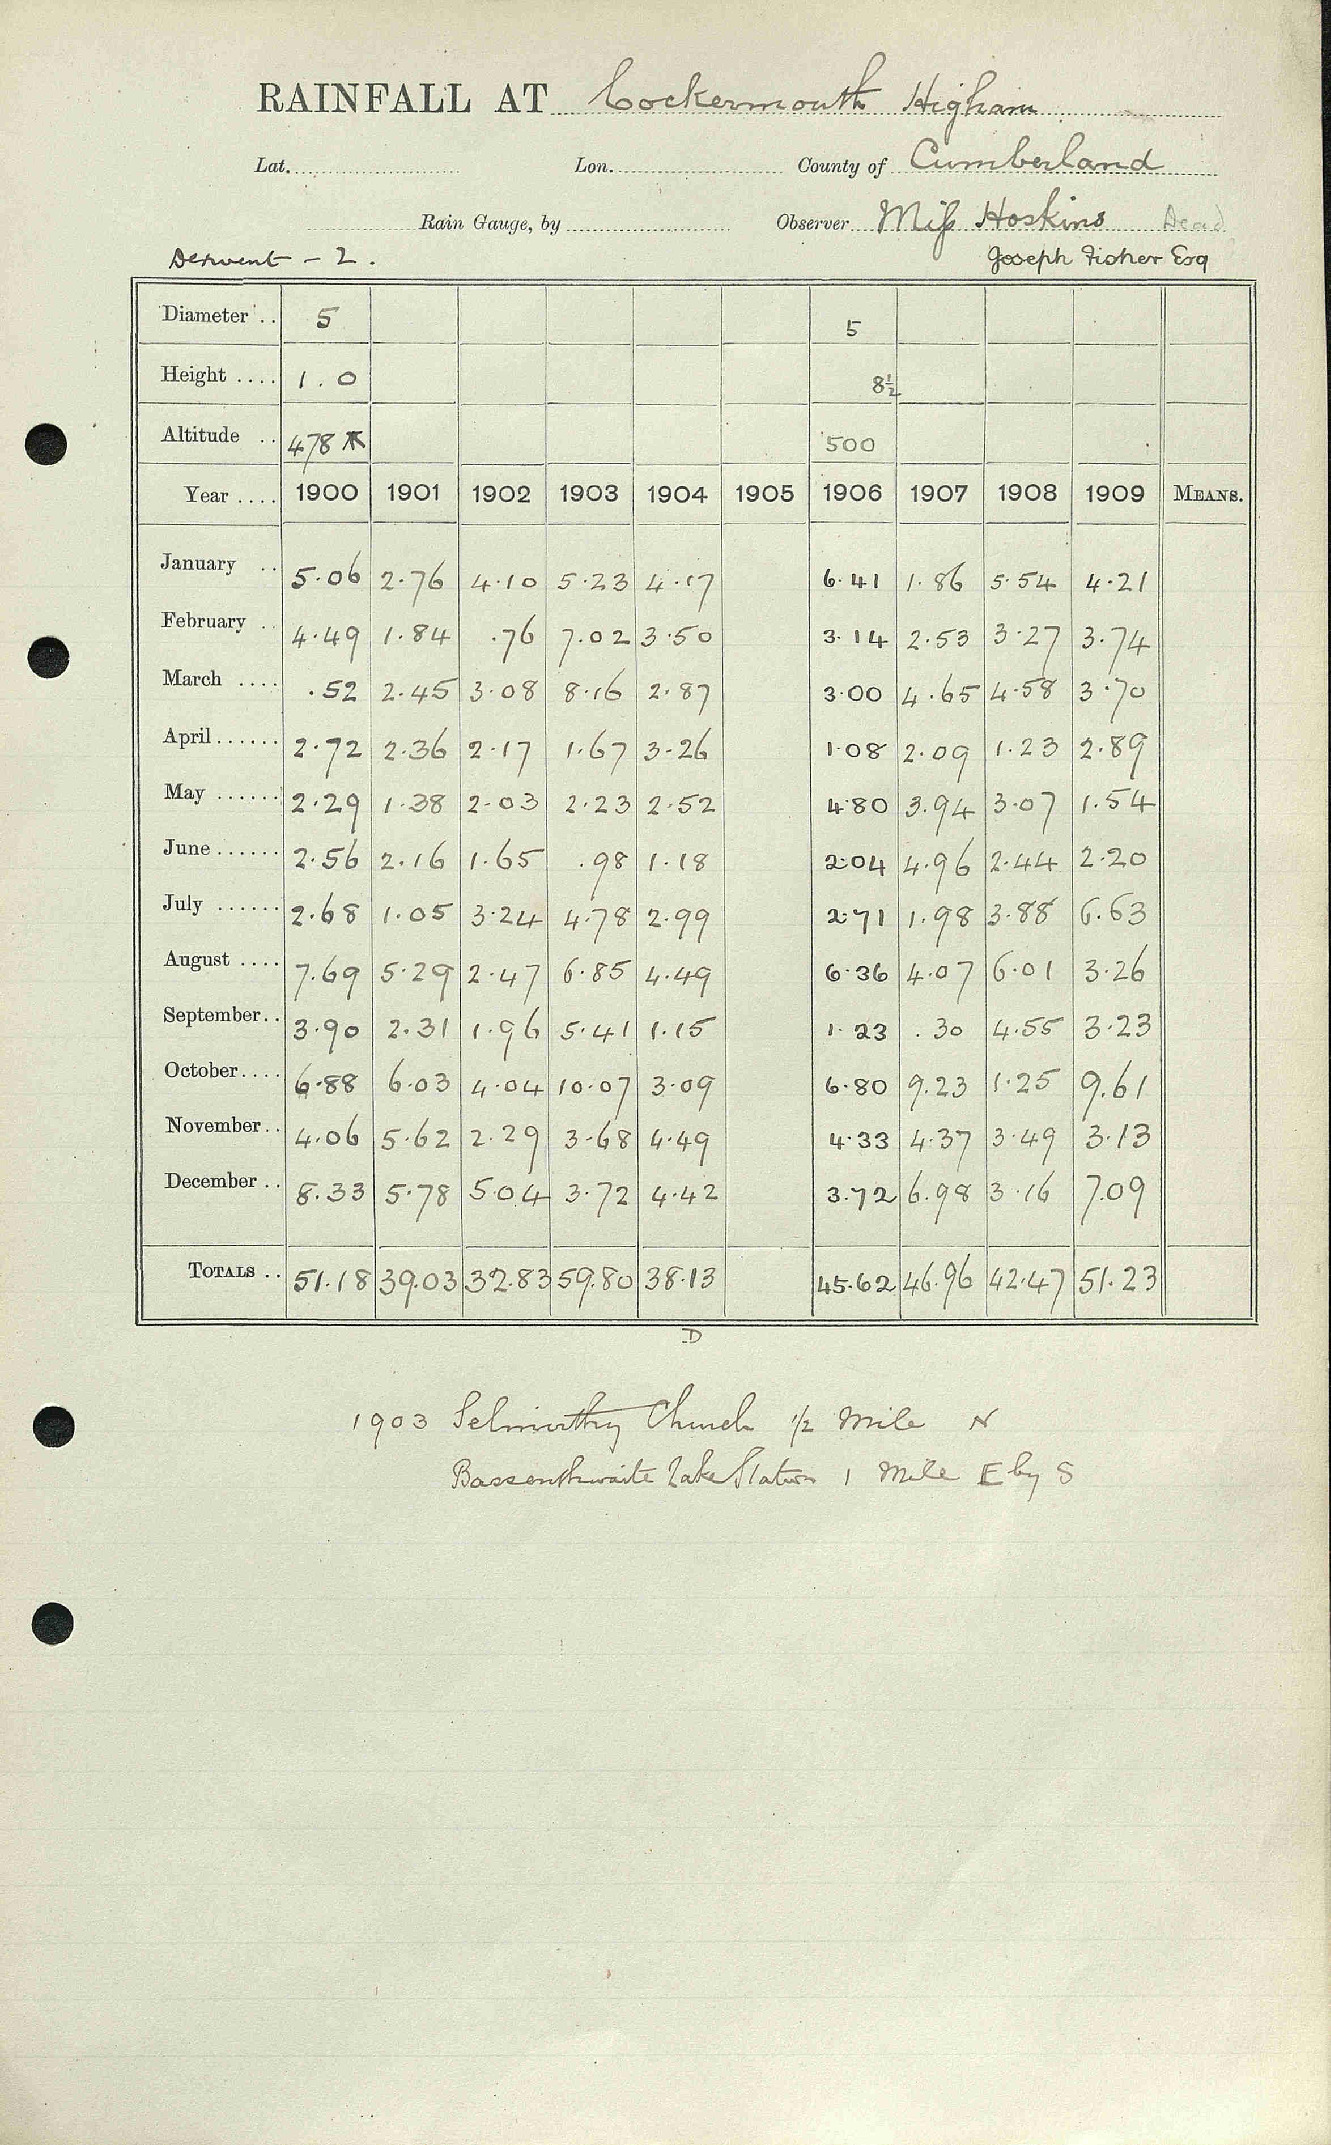 RAINFALL AT Cockermouth Higham
Lat. Lon. County of Cumberland
Rain Gauge, by Observer Miss Hoskins Dead
Derwent - 2. Joseph Fisher Esq
Diameter .. 5 5
Height .... 1.0 8½
Altitude .. 478 500
Year .... 1900 1901 1902 1903 1904 1905 1906 1907 1908 1909 MEANS.
January .. 5.06 2.76 4.10 5.23 4.17 6.41 1.86 5.54 4.21
February .. 4.49 1.84 .76 7.02 3.50 3.14 2.53 3.27 3.74
March .... .52 2.45 3.08 8.16 2.87 3.00 4.65 4.58 3.70
April ...... 2.72 2.36 2.17 1.67 3.26 1.08 2.09 1.23 2.89
May ...... 2.29 1.38 2.03 2.23 2.52 4.80 3.94 3.07 1.54
June ...... 2.56 2.16 1.65 .98 1.18 2.04 4.96 2.44 2.20
July ...... 2.68 1.05 3.24 4.78 2.99 2.71 1.98 3.88 6.63
August .... 7.69 5.29 2.47 6.85 4.49 6.36 4.07 6.01 3.26
September .. 3.90 2.31 1.96 5.41 1.15 1.23 .30 4.55 3.23
October .... 6.88 6.03 4.04 10.07 3.09 6.80 9.23 1.25 9.61
November .. 4.06 5.62 2.29 3.68 4.49 4.33 4.37 3.49 3.13
December .. 8.33 5.78 5.04 3.72 4.42 3.72 6.98 3.16 7.09
TOTALS .. 51.18 39.03 32.83 59.80 38.13 45.62 46.96 42.47 51.23
D
1903 Setmurthy Church ½ Mile N
Bassenthwaite Lake Station 1 Mile E by S